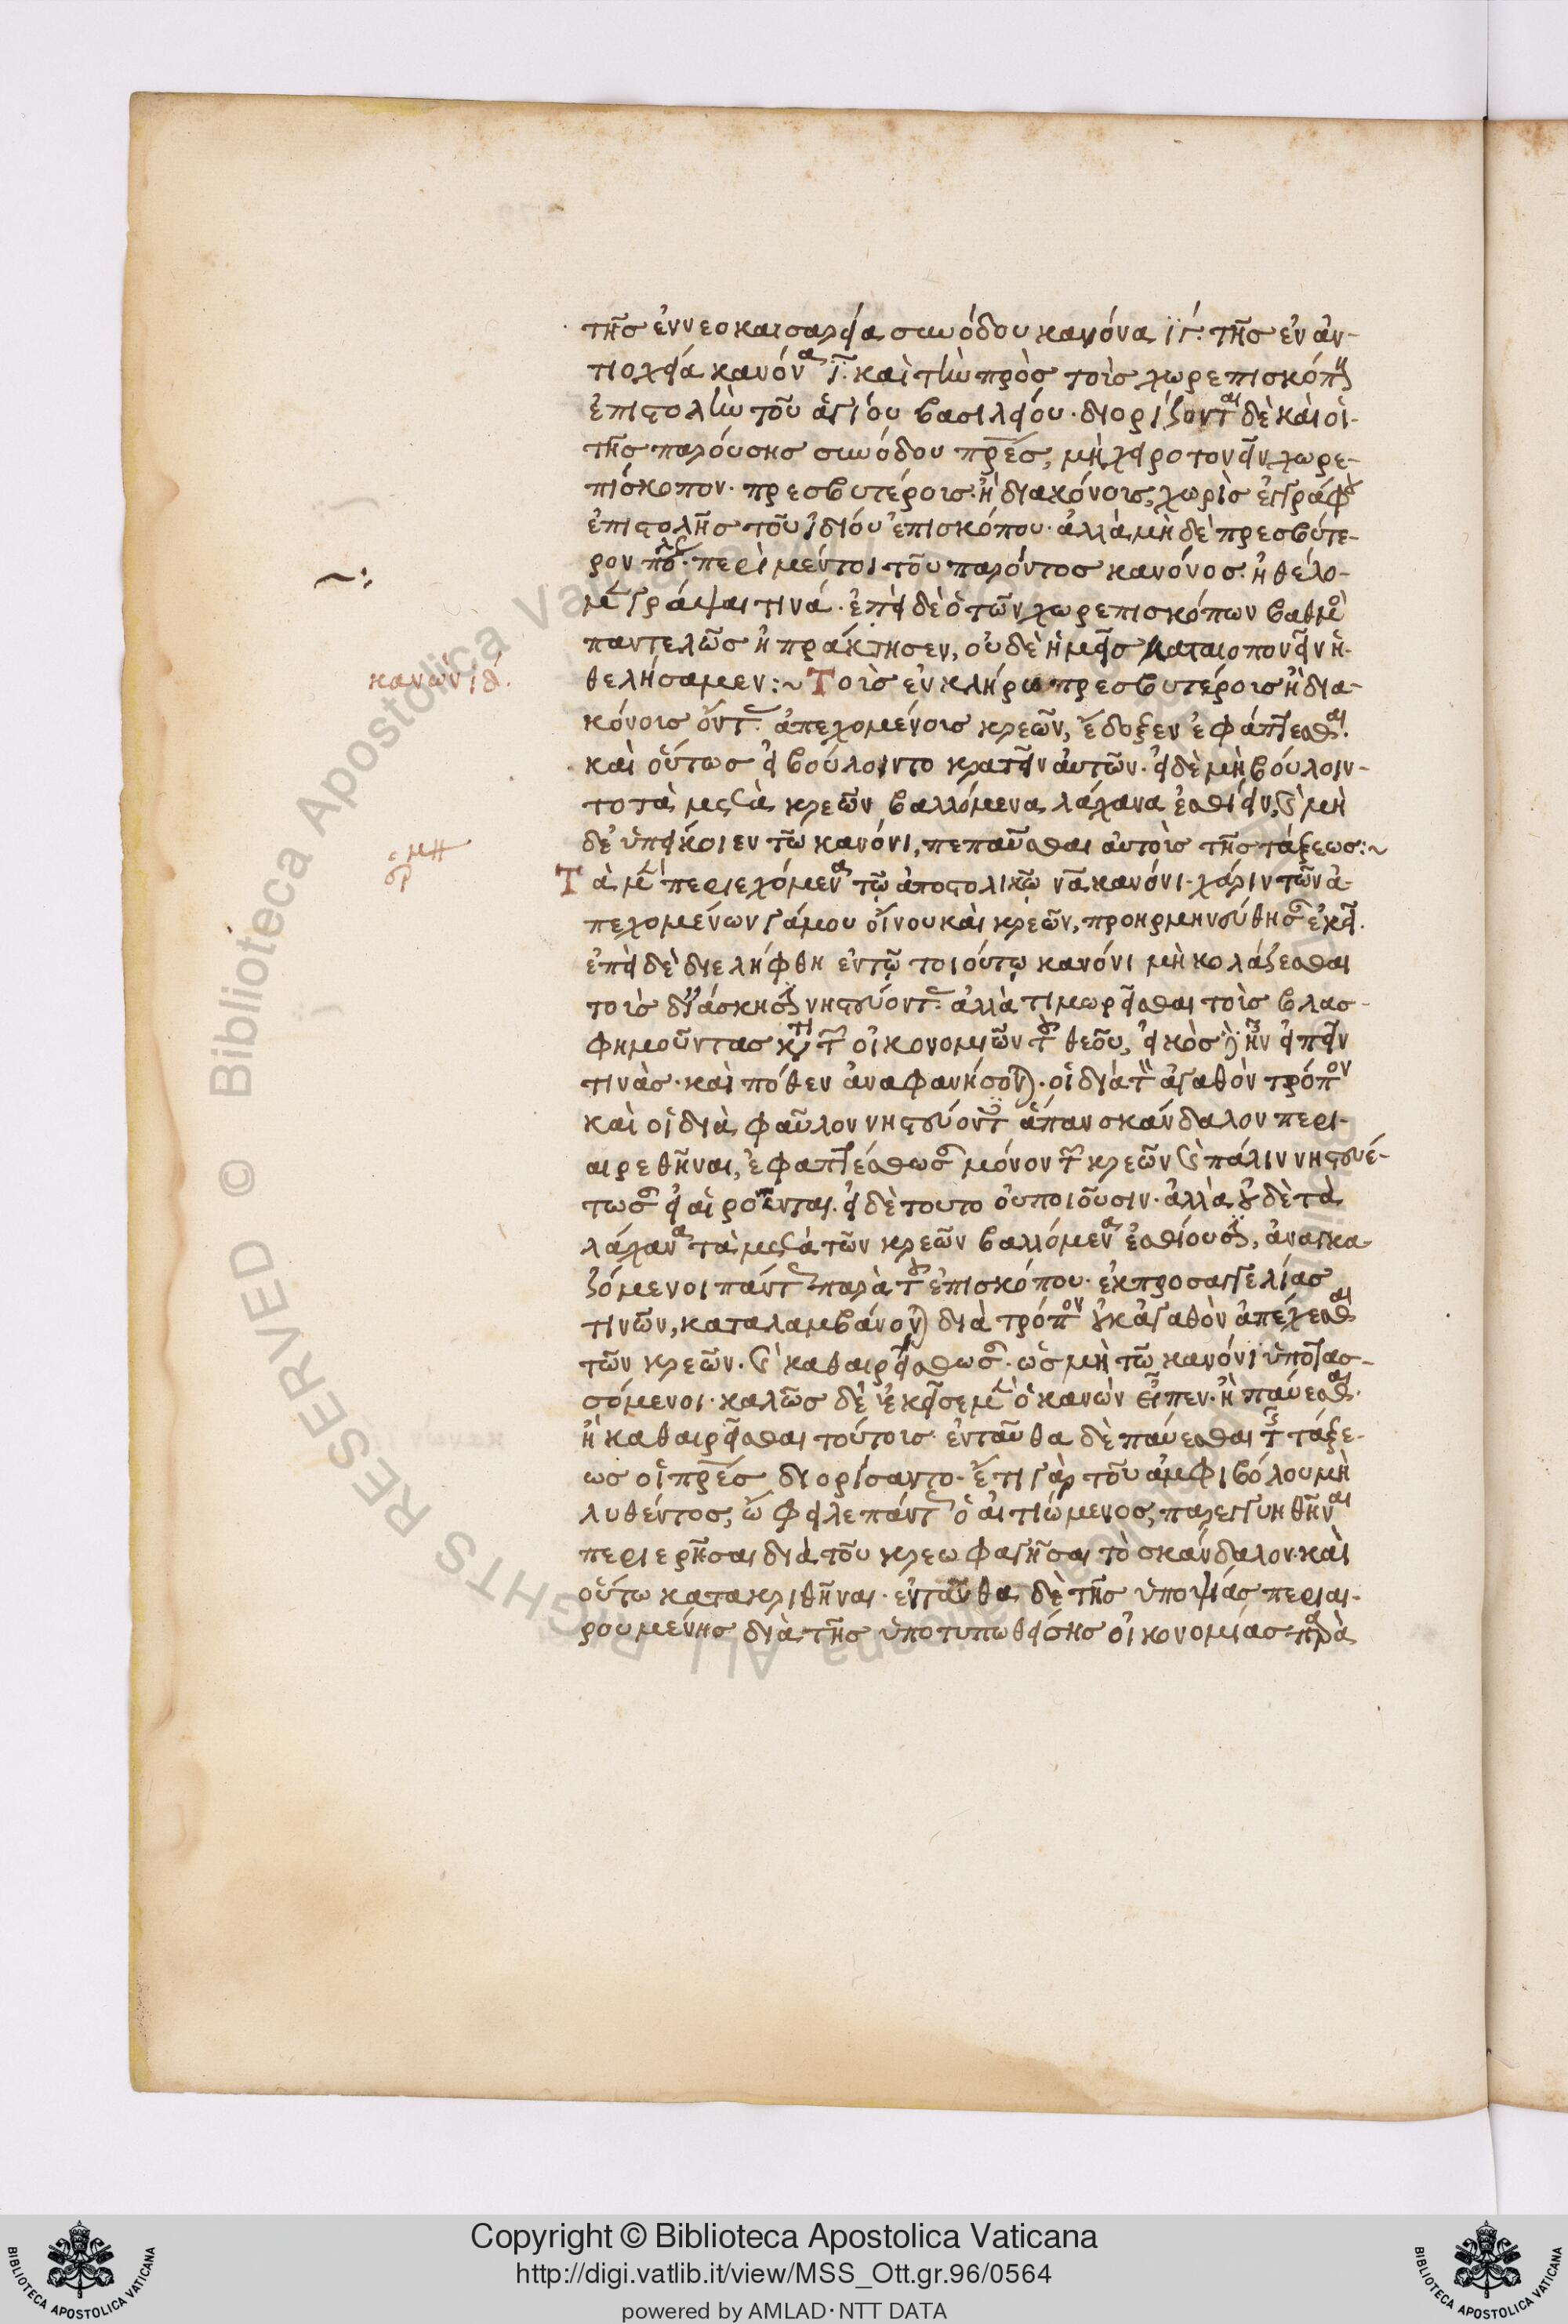 τῆς ἐν νεοκαισαρεία συνόδου κανόνα ιγ. τῆς ἐν ἀν-
τιοχεία κανόνα ι. καὶ τὴν πρὸς τοὶς χωρεπισκόπους
ἐπιστολὴν τοῦ ἁγίου βασιλείου· διορίζονται δὲ καὶ οἱ
τῆς παρούσης συνόδου πρες, μὴ χειροτονεῖν χωρε-
πίσκοπον· πρεσβυτέροις ἢ διακόνοις, χωρὶς ἐγγράφου
ἐπιστολῆς τοῦ ἰδίου ἐπισκόπου· ἀλλὰ μὴ δὲ πρεσβύτε-
ρον πόλεως· περὶ μέντοι τοῦ παρόντος κανόνος ἠθέλο-
μεν γράψαι τινά· ἐπεὶ δὲ ὁ τῶν χωρεπισκόπων βαθμὸς
παντελῶς ἠπράκτησεν, οὐδὲ ἡμεῖς ματαιοπονεῖν ἠ-
κανὼν ιδ.
θελήσαμεν:~ Τοὶς ἐν κλήρω πρεσβυτέροις ἢ δια-
κόνοις ὄντας ἀπεχομένοις κρεῶν, ἔδοξεν ἐφάπτεσθαι.
καὶ οὕτως εἰ βούλοιντο κρατεῖν αὐτῶν· εἰ δὲ μὴ βούλοιν-
το τὰ μετὰ κρεῶν βαλλόμενα λάχανα ἐσθίειν, καὶ μὴ
δὲ ὑπείκοιεν τῶ κανόνι, πεπαῦσθαι αὐτοὶς τῆς τάξεως:~
Τὰ μὲν περιεχόμενα τῷ ἀποστολικῷ να κανόνι· χάριν τῶν ἀ-
πεχομένων γάμου οἴνου καὶ κρεῶν, προηρμηνεύθησαν ἐκεῖ.
ἐπεὶ δὲ διελήφθη ἐν τῷ τοιούτῳ κανόνι μὴ κολάζεσθαι
τοὶς δι' άσκησιν νηστεύοντας ἀλλὰ τιμωρεῖσθαι τοὶς βλασ-
φημοῦντας κατὰ τῶν οἰκονομιῶν τοῦ θεοῦ, εἰκὸς δὲ ἦν εἰπεῖν
τινὰς· καὶ πόθεν ἀναφανήσονται· οἱ διὰ τὸν ἀγαθὸν τρόπον
καὶ οἱ διὰ φαῦλον νηστεύοντες ἅπαν σκάνδαλον περι-
αιρεθῆναι, ἐφαπτέσθωσαν μόνον τῶν κρεῶν καὶ πάλιν νηστευέ-
τωσαν εἰ αἱροῦνται. εἰ δὲ τουτο οὐ ποιοῦσιν· ἀλλὰ οὐδὲ τὰ
λάχανα τὰ μετὰ τῶν κρεῶν βαλλόμενα ἐσθίουσιν, ἀναγκα
ζόμενοι πάντως παρὰ τοῦ ἐπισκόπου· ἐκ προσαγγελίας
τινῶν, καταλαμβάνονται διὰ τρόπον οὐκ ἀγαθὸν ἀπέχεσθαι
τῶν κρεῶν. καὶ καθαιρείσθωσαν· ὡς μὴ τῶ κανόνι ὑποτας-
σόμενοι· καλῶς δὲ ἐκεῖσε μὲν ὁ κανὼν εἶπεν· ἢ παύεσθαι.
ἢ καθαιρεῖσθαι τούτοις· ἐνταῦθα δὲ παύεσθαι τῆς τάξε-
ως οἱ πρες διορίσαντο· ἔτι γὰρ τοῦ ἀμφιβόλου μὴ
λυθέντος, ὤφειλε πάντως ὁ αἰτιώμενος, παρεγγυηθῆναι
περιερῆσαι διὰ τοῦ κρεωφαγῆσαι τὸ σκάνδαλον· καὶ
οὕτω κατακριθῆναι· ἐνταῦθα δὲ τῆς ὑποψίας περιαι-
ρουμένης διὰ τῆς ὑποτυπωθείσης οἰκονομίας παρὰ
Copyright © Biblioteca Apostolica Vaticana
http://digi.vatlib.it/view/MSS_Ott.gr.96/0564
powered by AMLAD·NTT DATA